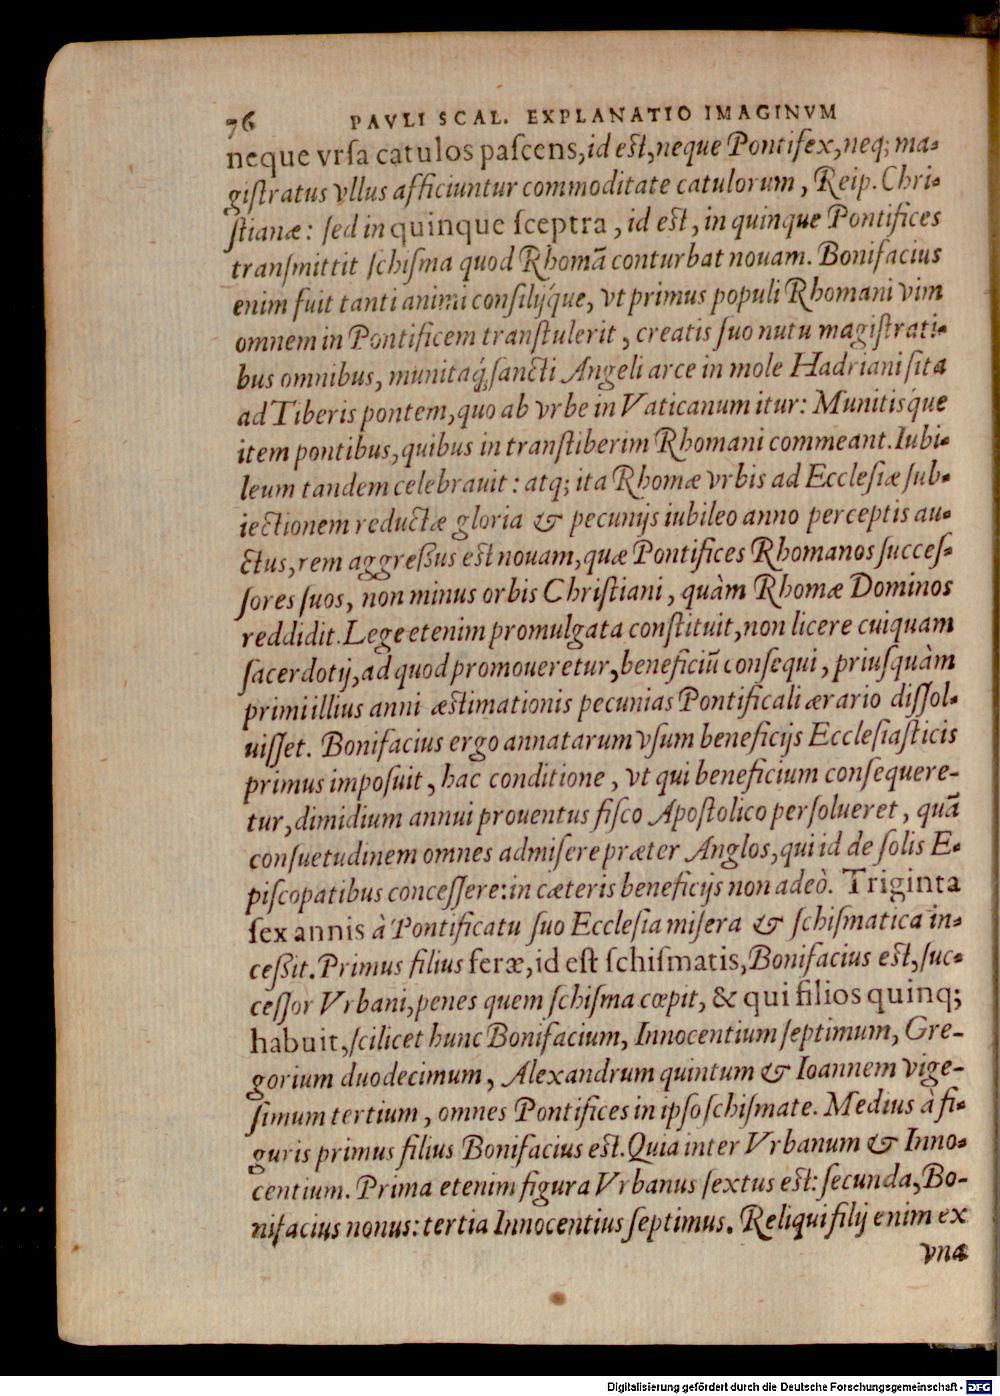 76 PAVLI SCAL. EXPLANATIO IMAGINVM
neque vrſa catulos paſcens, id eſt, neque Pontifex, neq; ma-
giſtratus vllus afficiuntur commoditate catulorum, Reip. Chri-
ſtianæ: ſed in quinque ſceptra, id eſt, in quinque Pontifices
tranſmittit ſchiſma quod Rhomã conturbat nouam. Bonifacius
enim fuit tanti animi conſilijq́ue, vt primus populi Rhomani vim
omnem in Pontificem tranſtulerit, creatis ſuo nutu magiſtrati-
bus omnibus, munitaq́; ſancti Angeli arce in mole Hadriani ſita
ad Tiberis pontem, quo ab vrbe in Vaticanum itur: Munitisq́ue
item pontibus, quibus in tranſtiberim Rhomani commeant. Iubi-
leum tandem celebrauit: atq; ita Rhomæ vrbis ad Eccleſiæ ſub-
iectionem reductæ gloria & pecunijs iubileo anno perceptis au-
ctus, rem aggreßus eſt nouam, quæ Pontifices Rhomanos ſucceſ-
ſores ſuos, non minus orbis Chriſtiani, quàm Rhomæ Dominos
reddidit. Lege etenim promulgata conſtituit, non licere cuiquam
ſacerdotij, ad quod promoueretur, beneficiũ conſequi, priuſquàm
primi illius anni æſtimationis pecunias Pontificali ærario diſſol-
uiſſet. Bonifacius ergo annatarum vſum beneficijs Eccleſiaſticis
primus impoſuit, hac conditione, vt qui beneficium conſequere-
tur, dimidium annui prouentus fiſco Apoſtolico perſolueret, quã
conſuetudinem omnes admiſere præter Anglos, qui id de ſolis E-
piſcopatibus conceſſere: in cæteris beneficijs non adeò. Triginta
ſex annis à Pontificatu ſuo Eccleſia miſera & ſchiſmatica in-
ceßit. Primus filius feræ, id eſt ſchiſmatis, Bonifacius eſt, ſuc-
ceſſor Vrbani, penes quem ſchiſma cœpit, & qui filios quinq;
habuit, ſcilicet hunc Bonifacium, Innocentium ſeptimum, Gre-
gorium duodecimum, Alexandrum quintum & Ioannem vige-
ſimum tertium, omnes Pontifices in ipſo ſchiſmate. Medius à fi-
guris primus filius Bonifacius eſt. Quia inter Vrbanum & Inno-
centium. Prima etenim figura Vrbanus ſextus eſt: ſecunda, Bo-
nifacius nonus: tertia Innocentius ſeptimus. Reliqui filij enim ex
vna
Digitalisierung gefördert durch die Deutsche Forschungsgemeinschaft - DFG